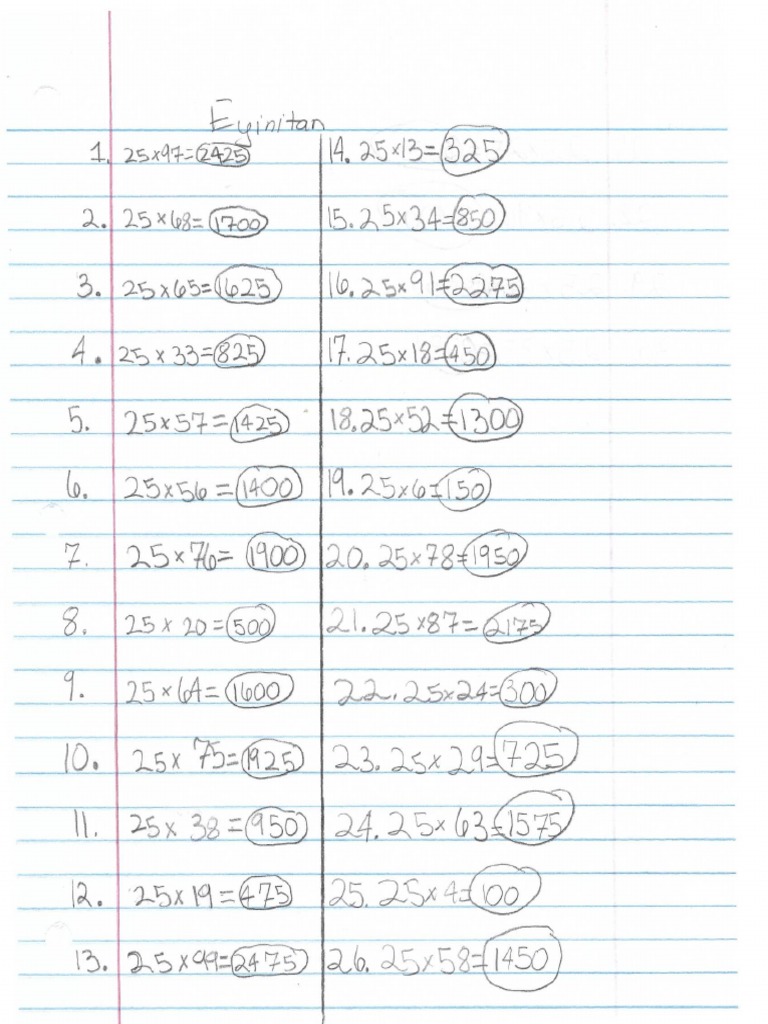 Eyinitan
1. 25x97=2425
2. 25x68=1700
3. 25x65=1625
4. 25x33=825
5. 25x57=1425
6. 25x56=1400
7. 25x76=1900
8. 25x20=500
9. 25x64=1600
10. 25x75=1925
11. 25x38=950
12. 25x19=475
13. 25x99=2475
14. 25x13=325
15. 25x34=850
16. 25x91=2275
17. 25x18=450
18. 25x52=1300
19. 25x6=150
20. 25x78=1950
21. 25x87=2175
22. 25x24=300
23. 25x29=725
24. 25x63=1575
25. 25x4=100
26. 25x58=1450